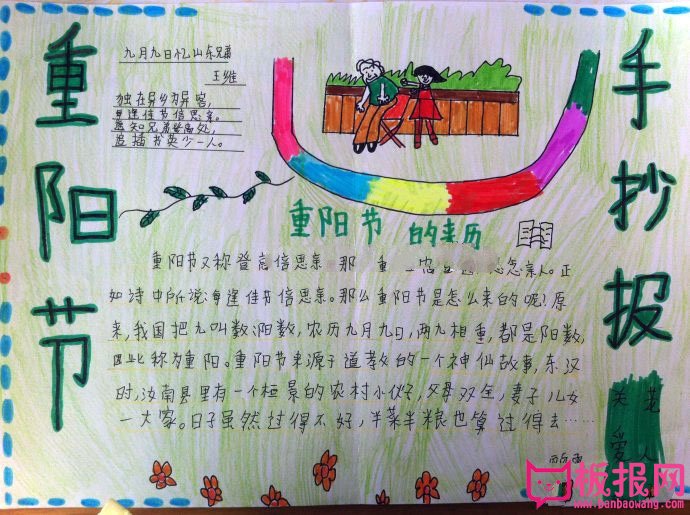 重阳节
手抄报
九月九日忆山东兄弟
王维
独在异乡为异客，
每逢佳节倍思亲。
遥知兄弟登高处，
遍插茱萸少一人。
重阳节的来历
重阳节又称登高倍思亲 那 重 思念亲人。正
如诗中所说：每逢佳节倍思亲。那么重阳节是怎么来的呢？原
来，我国把九叫数：阳数，农历九月九日，两九相重，都是阳数，
因此称为重阳。重阳节来源于道教的一个神仙故事，东汉
时，汝南县里有一个桓景的农村小伙子，父母双全，妻子儿女
一大家。日子虽然过得不好，半菜半粮也算过得去……
关
爱
老
人
板报网
www.banbaowang.com